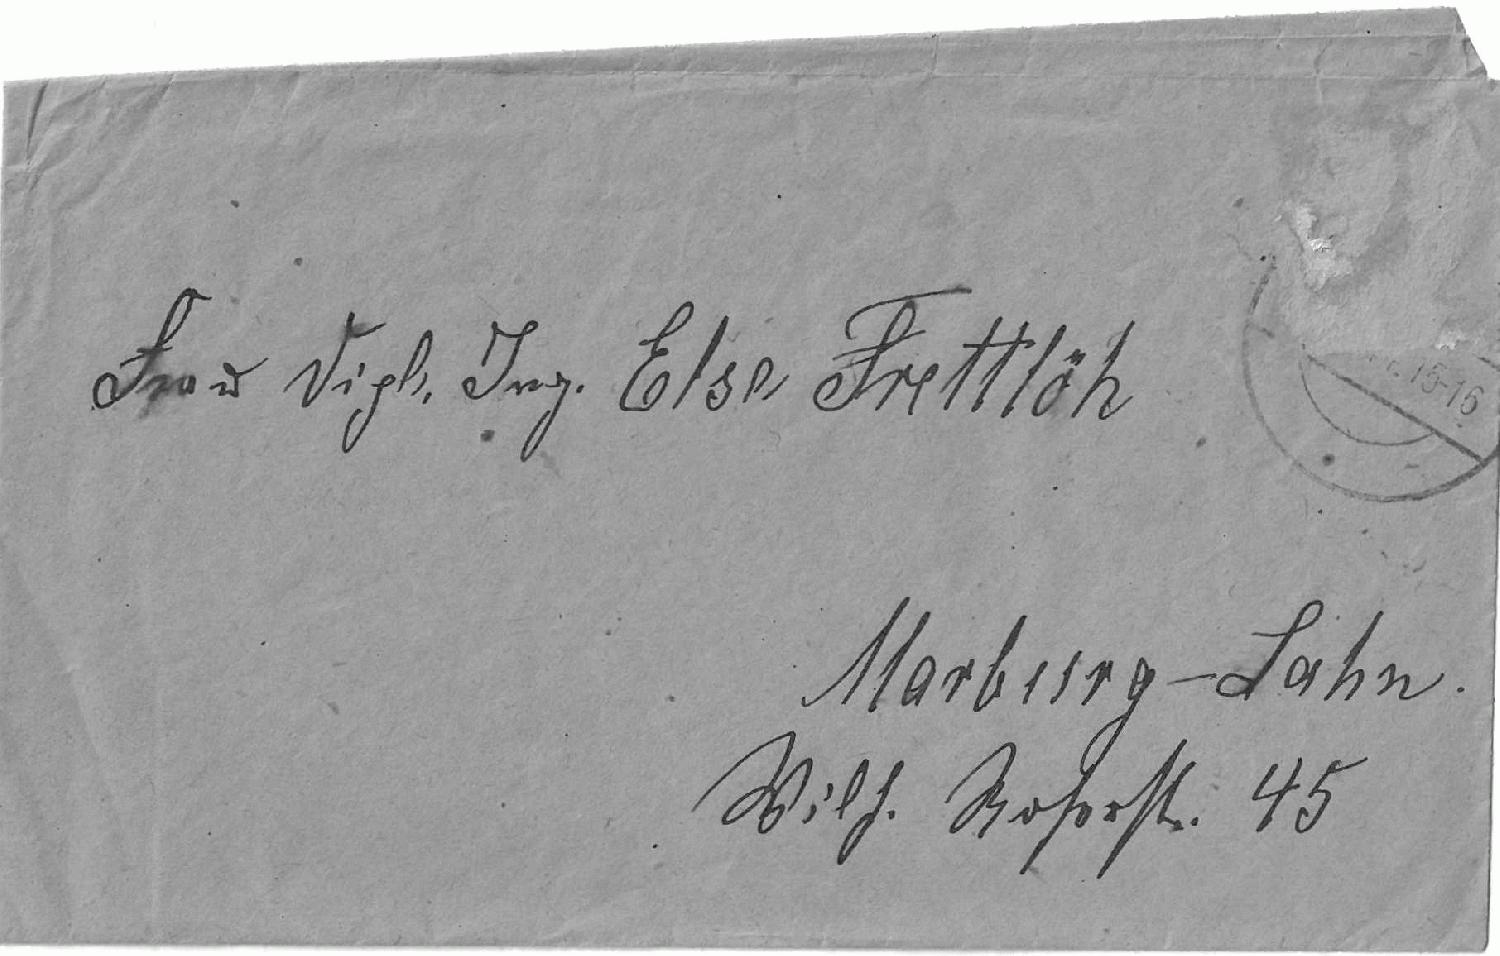 Frau Dipl. Ing. Else Frettlöh
15-16
Marburg-Lahn.
Wilh. Roserstr. 45